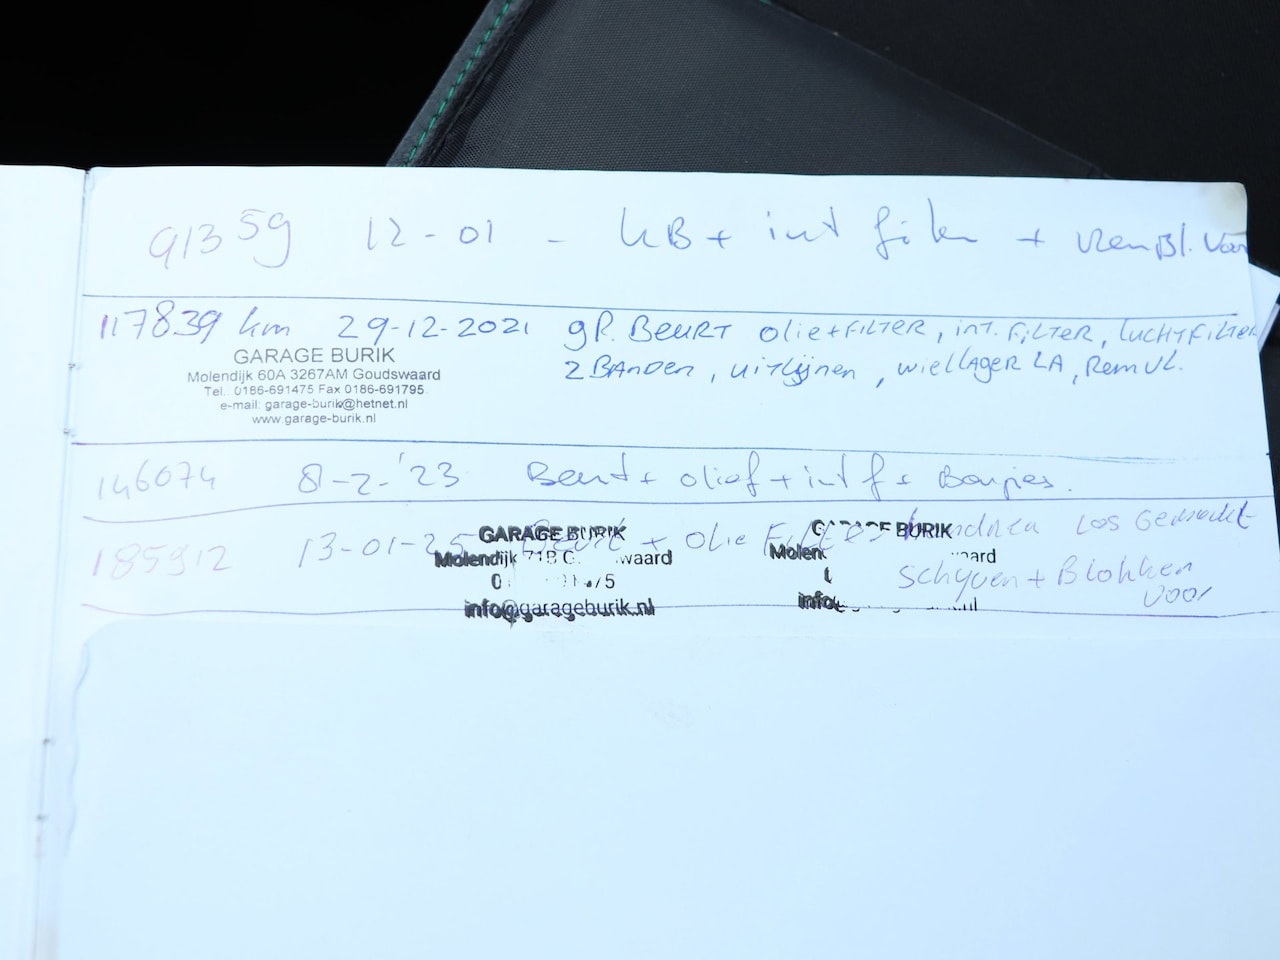 91359 12-01 - KB + int filter + remBl. Voor
117839 km 29-12-2021 gr. BEURT olie+FILTER, int. FILTER, LUCHTFILTER
2 BANDEN, UITLIJNEN, WIELLAGER LA, REMVL.
GARAGE BURIK
Molendijk 60A 3267AM Goudswaard
Tel. 0186-691475 Fax 0186-691795
e-mail: garage-burik@hetnet.nl
www.garage-burik.nl
146074 8-2-'23 Beurt + olief + int f + Bougies.
185912 13-01-25 Beurt + Olie Filter + handrem Los Gemaakt
Schijven + Blokken
voor
GARAGE BURIK
Molendijk 71B
info@garageburik.nl
BURIK